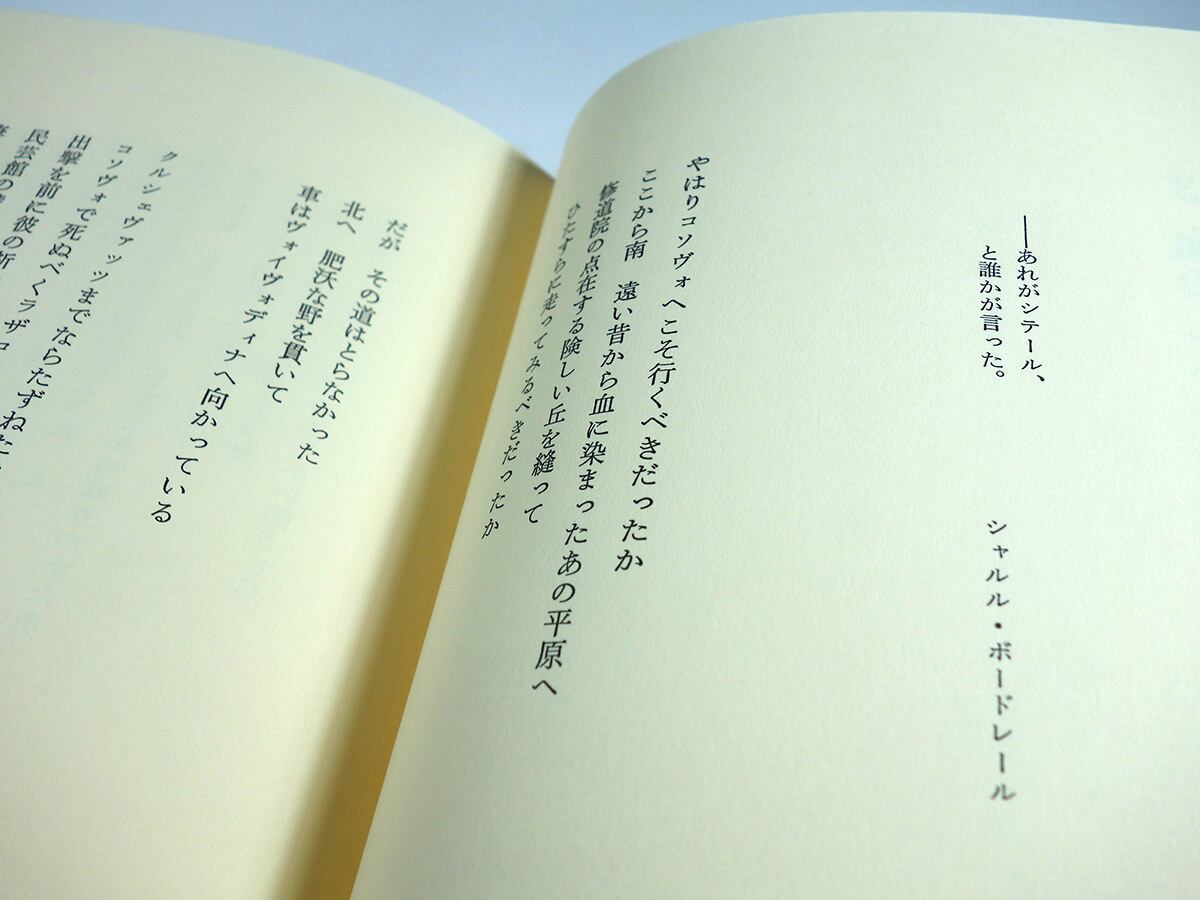 ――あれがシテール、
と誰かが言った。
シャルル・ボードレール
やはりコソヴォへこそ行くべきだったか
ここから南　遠い昔から血に染まったあの平原へ
修道院の点在する険しい丘を縫って
ひたすらに走ってみるべきだったか
だが　その道はとらなかった
北へ　肥沃な野を貫いて
車はヴォイヴォディナへ向かっている
クルシェヴァッツまでならたずねた
コソヴォで死ぬべくラザロ
出撃を前に彼の祈
民芸館の